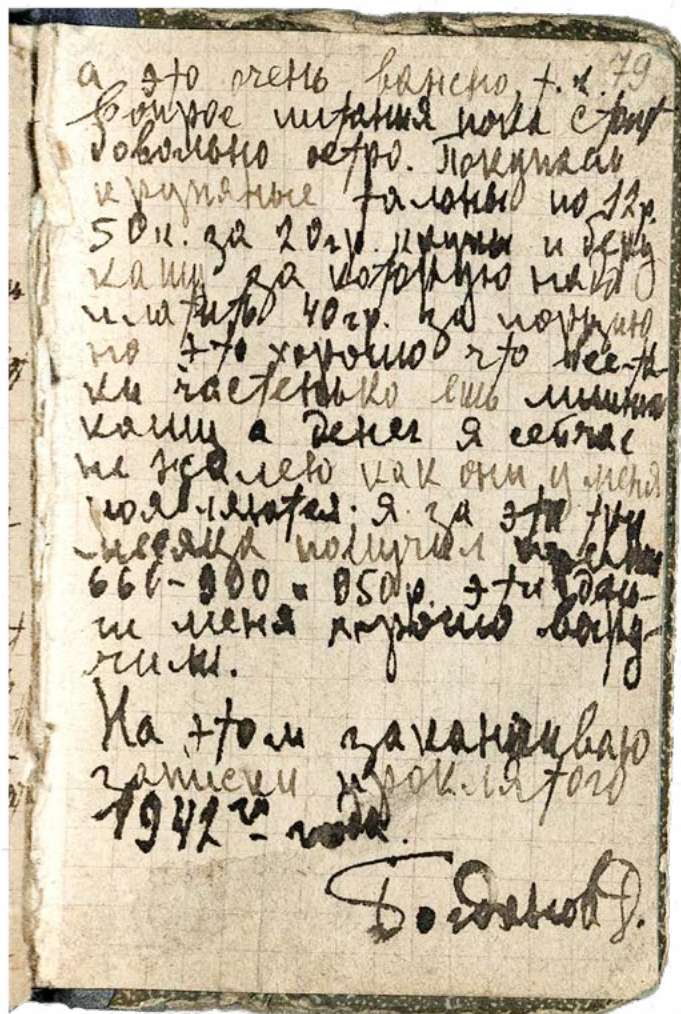 79
а это очень важно, т.к.
вопрос питания пока стоит
довольно остро. Покупаем
крупяные талоны по 12р.
50к. за 20гр. крупы и беру
кашу за которую надо
платить 40гр. за порцию
но это хорошо что все-та-
ки частенько ешь лишнюю
кашу а денег я сейчас
не жалею как они у меня
появляются. Я за эти три
месяца получил
666-900 и 850р. эти день-
ги меня хорошо выру-
чили.
На этом заканчиваю
записки проклятого
1942го года.
Богданов